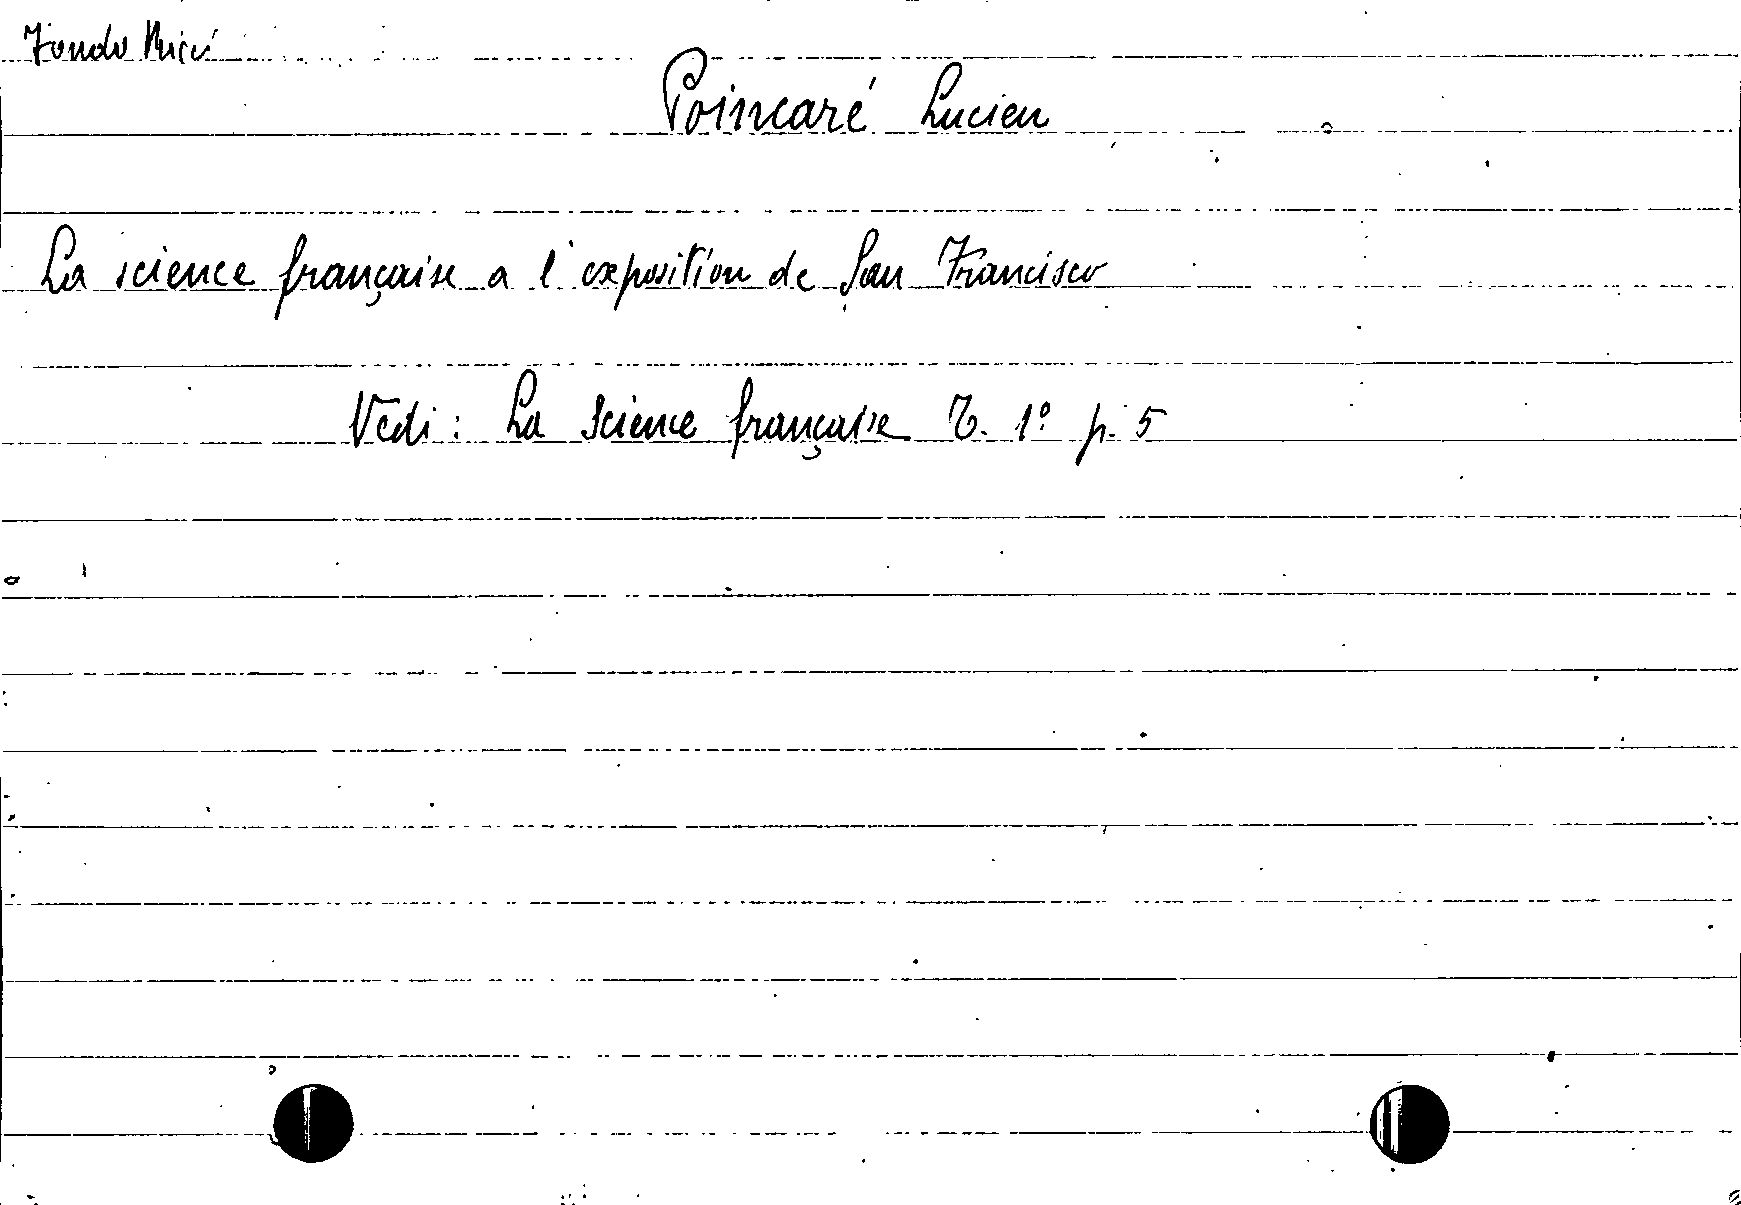 Fondo
Poincaré Lucien
La science française a l'exposition de San Francisco
Vedi: La Science française T. 1º p. 5